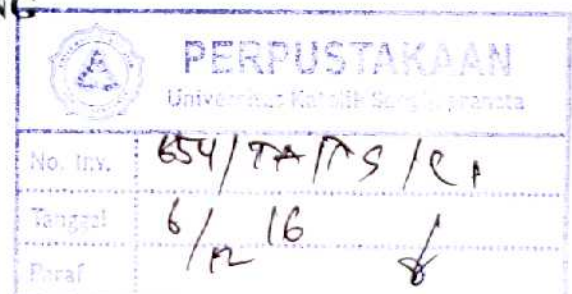 NG
PERPUSTAKAAN
Universitas Katolik Soegijapranata
No. Inv. 654/TA/TS/C1
Tanggal 6/12 16
Paraf